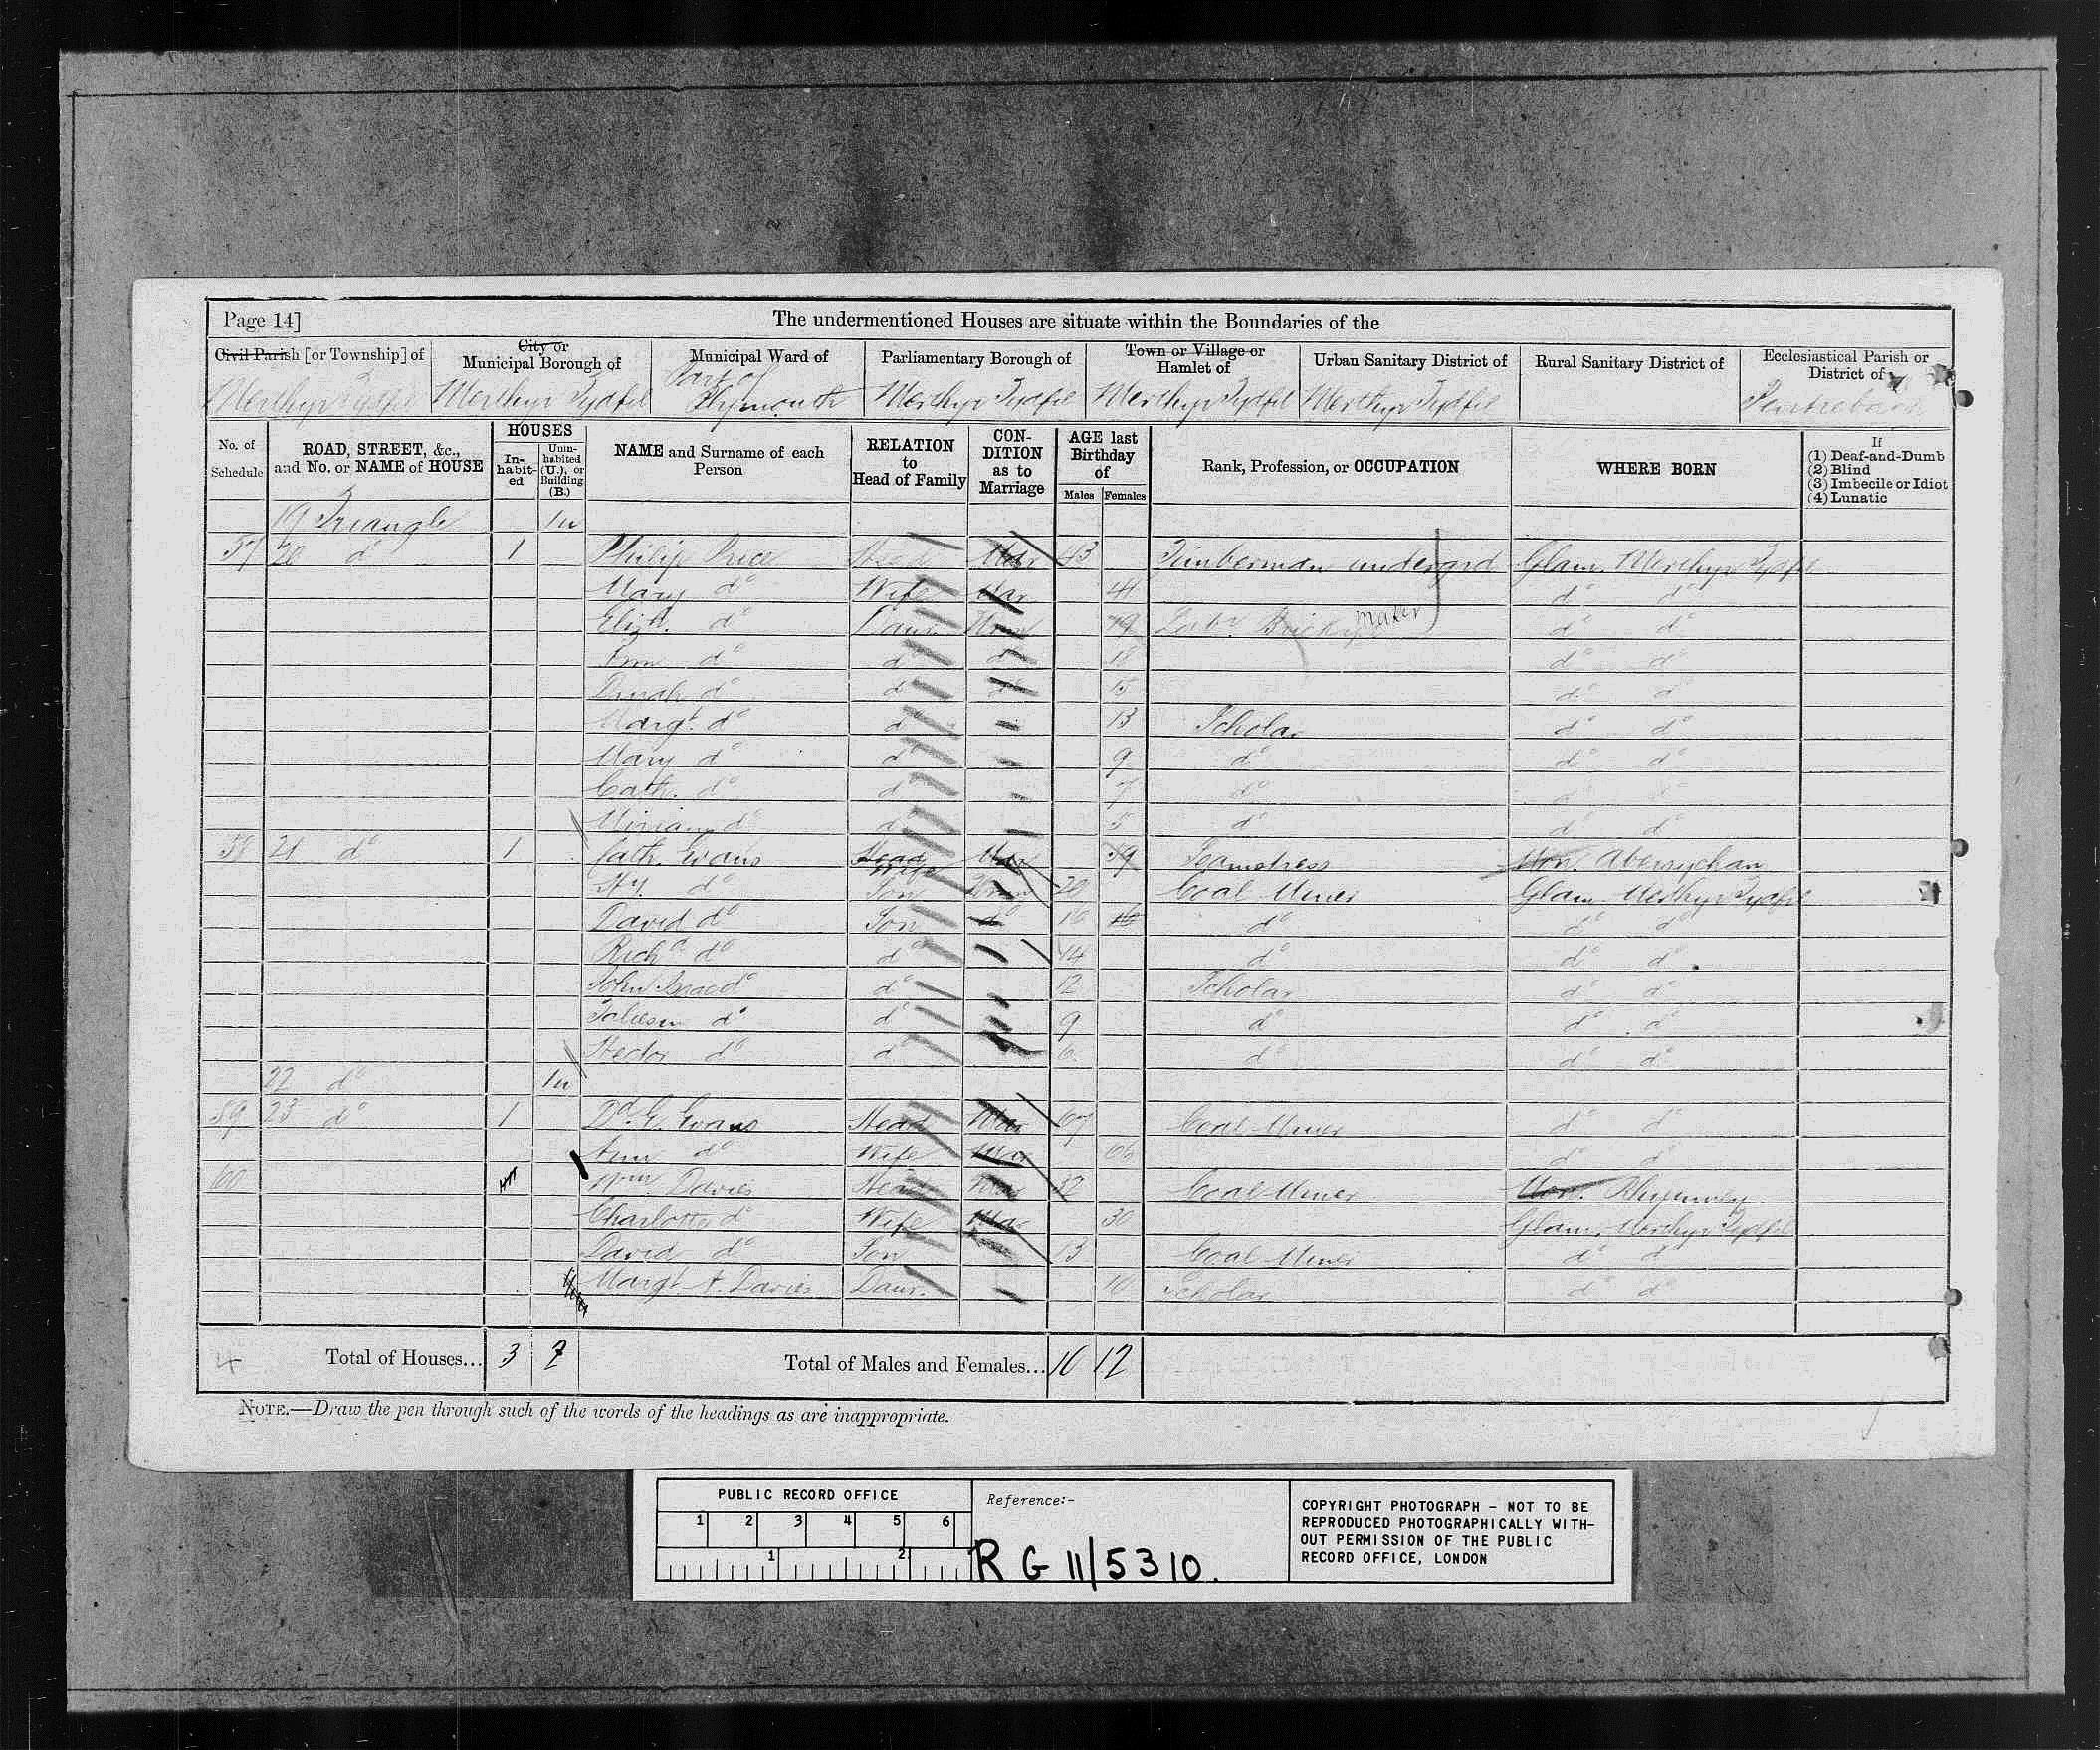 Page 14]
The undermentioned Houses are situate within the Boundaries of the
Civil Parish [or Township] of
City or Municipal Borough of
Municipal Ward of
Parliamentary Borough of
Town or Village or Hamlet of
Urban Sanitary District of
Rural Sanitary District of
Ecclesiastical Parish or District of
Merthyr Tydfil Merthyr Tydfil Part of Plymouth Merthyr Tydfil Merthyr Tydfil Merthyr Tydfil Pentrebach
No. of Schedule
ROAD, STREET, &c., and No. or NAME of HOUSE
HOUSES
In-habit-ed
Unin-habited (U.), or Building (B.)
NAME and Surname of each Person
RELATION to Head of Family
CON-DITION as to Marriage
AGE last Birthday of
Males Females
Rank, Profession, or OCCUPATION
WHERE BORN
If
(1) Deaf-and-Dumb
(2) Blind
(3) Imbecile or Idiot
(4) Lunatic
19 Triangle 1u
57 20 do 1 Philip Price Head Mar 43 Timberman undergrd Glam. Merthyr Tydfil
Mary do Wife Mar 41 do do
Elizh. do Daur. Unm 19 Labr. Bricky maker do do
Ann do do do 18 do do
Dinah do do do 15 do do
Margt. do do 13 Scholar do do
Mary do do 9 do do do
Cath. do do 7 do do do
Miriam do do 5 do do do
58 21 do 1 Cath. Evans Head Wife Mar 39 Seamstress Mon. Abersychan
Hy. do Son Unm 20 Coal Miner Glam Merthyr Tydfil
David do Son do 16 16 do do do
Richd do do 14 do do do
John Isaac do do 12 Scholar do do
Taliesin do do 9 do do do
Hector do do 6 do do do
22 do 1u
59 23 do 1 Dd. E. Evans Head Mar 67 Coal Miner do do
Ann do Wife Mar 66 do do
60 Wm Davies Head Mar 32 Coal Miner Mon. Rhymney
Charlotte do Wife Mar 30 Glam. Merthyr Tydfil
David do Son 13 Coal Miner do do
Margt A. Davies Daur. 10 Scholar do do
4 Total of Houses... 3 2 Total of Males and Females... 10 12
NOTE.—Draw the pen through such of the words of the headings as are inappropriate.
PUBLIC RECORD OFFICE
1 2 3 4 5 6
1 2
Reference:-
RG 11/5310.
COPYRIGHT PHOTOGRAPH - NOT TO BE
REPRODUCED PHOTOGRAPHICALLY WITH-
OUT PERMISSION OF THE PUBLIC
RECORD OFFICE, LONDON